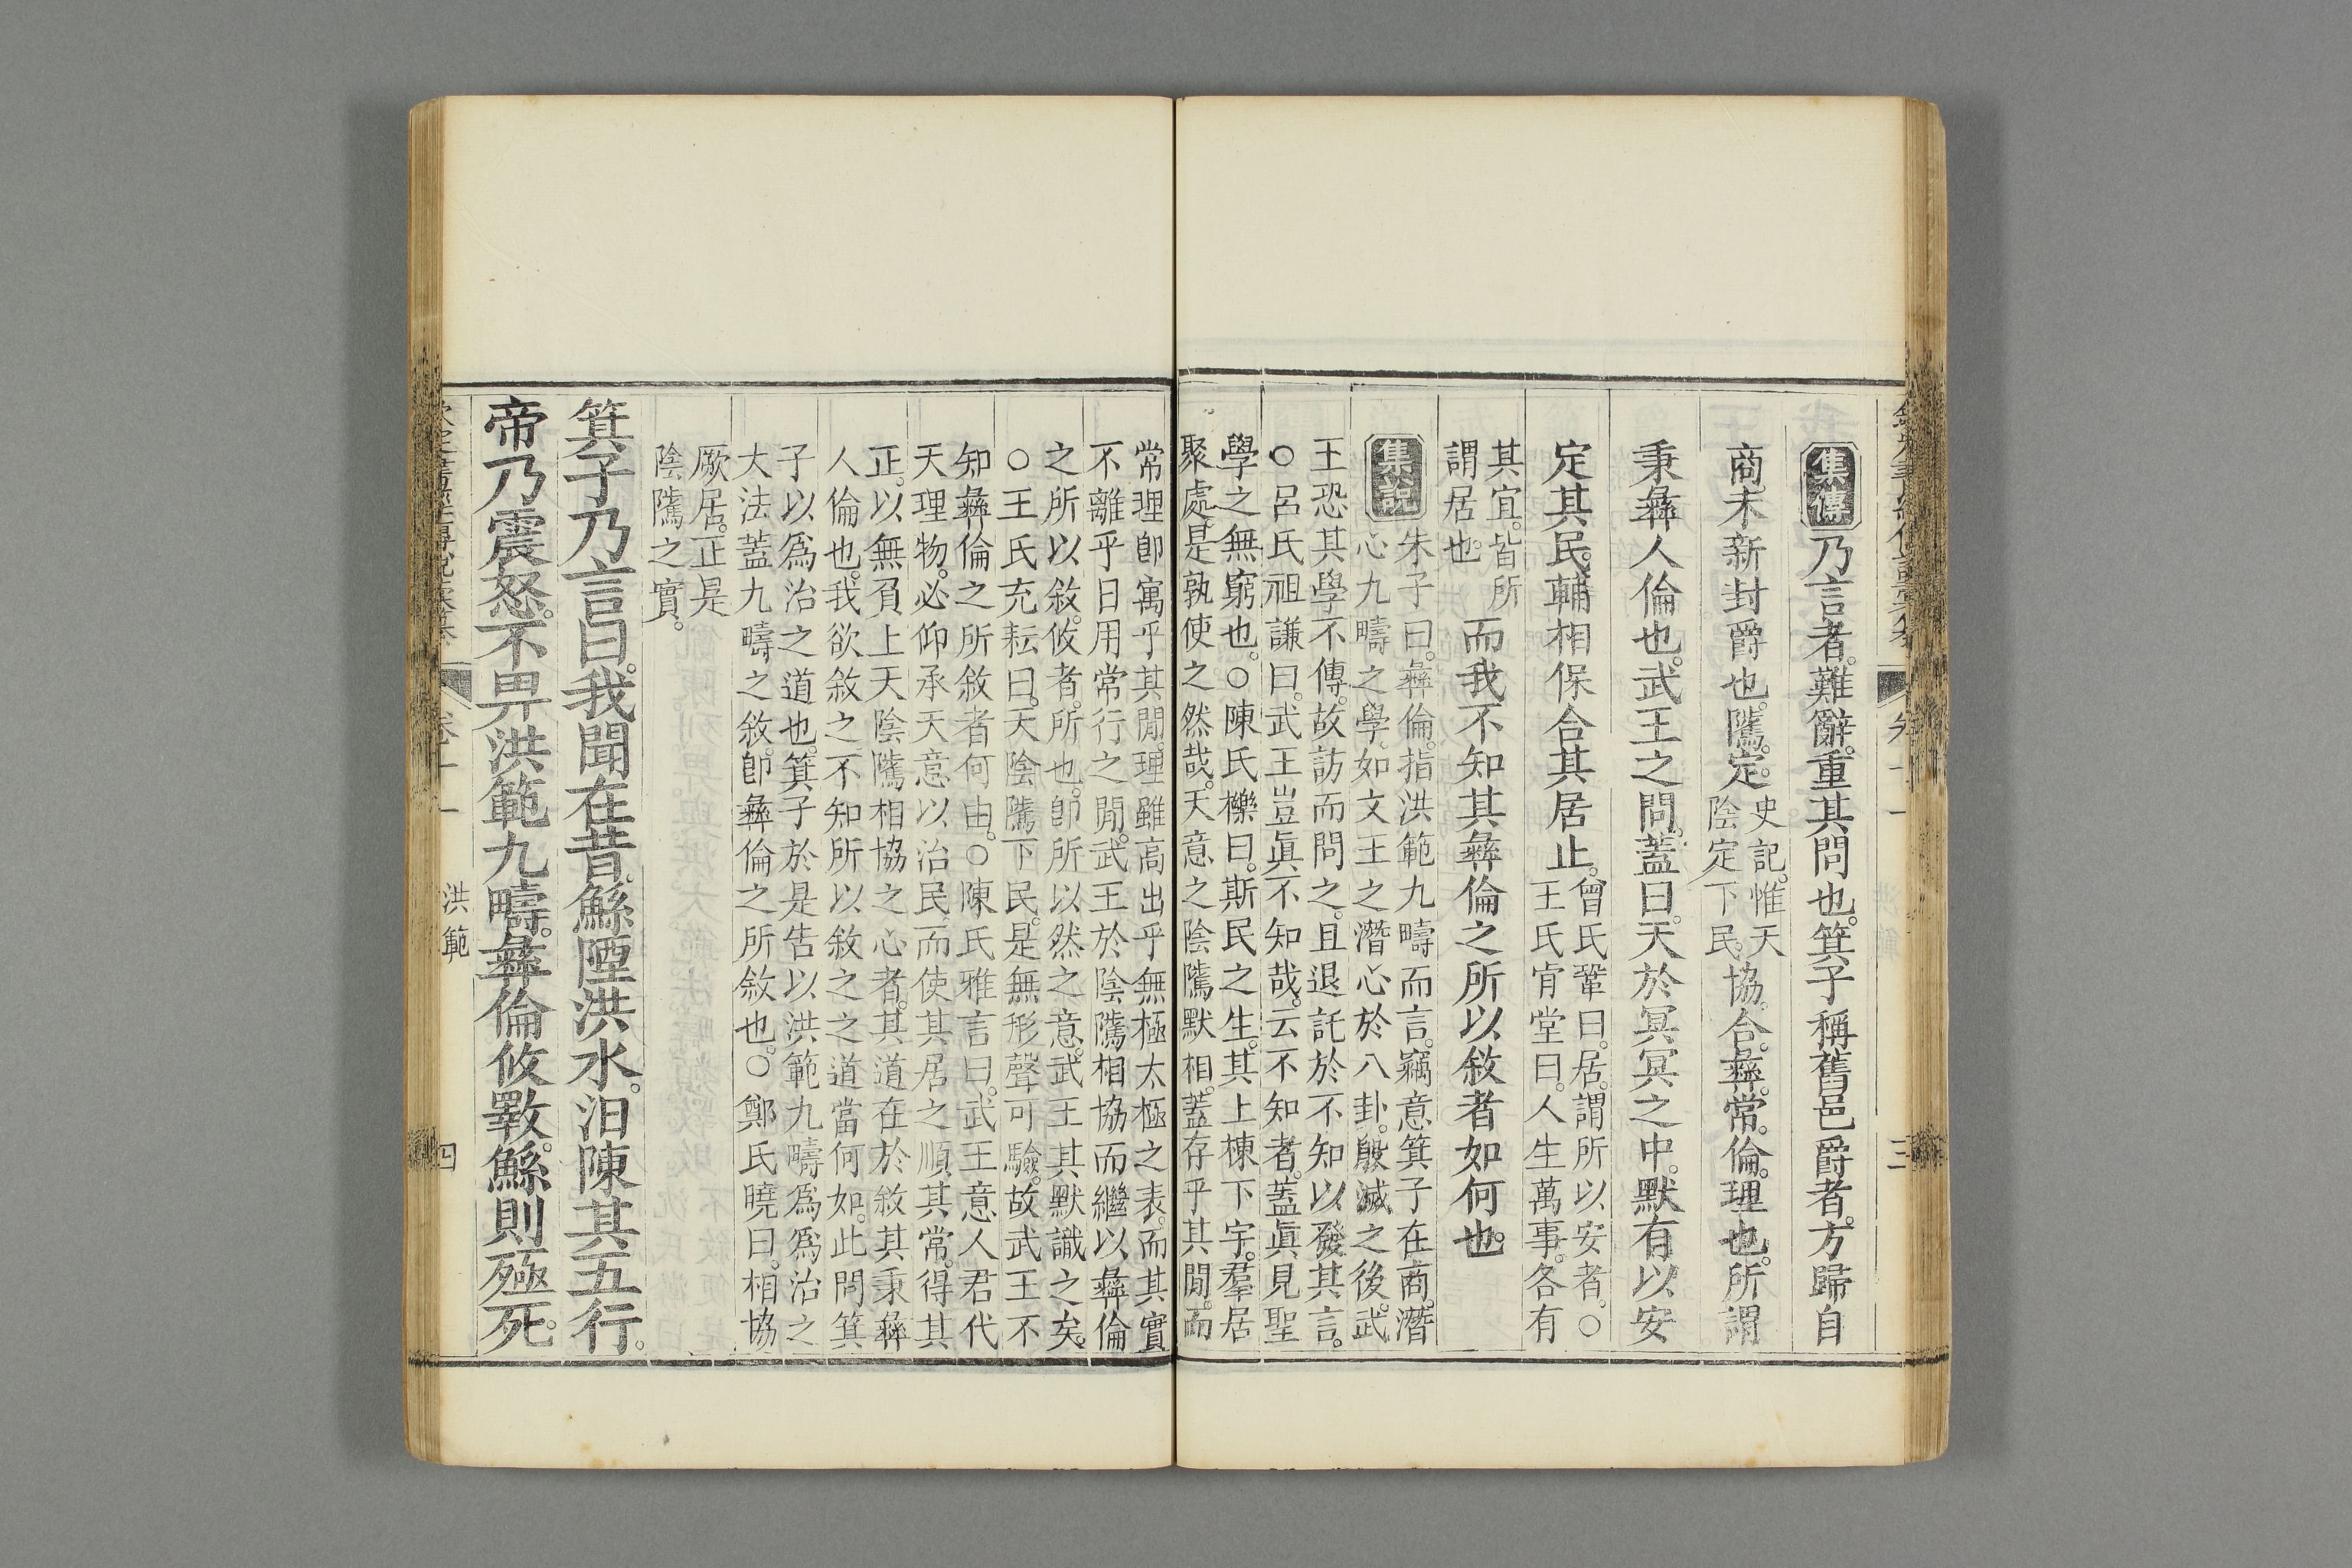 集傳 乃言者。難辭。重其問也。箕子稱舊邑爵者。方歸自
商。未新封爵也。隲。定。
史記。惟天
陰定下民。
協。合。彝。常。倫。理也。所謂
秉彝人倫也。武王之問。蓋曰。天於冥冥之中。默有以安
定其民。輔相保合其居止。
曾氏鞏曰。居。謂所以安者。○
王氏肯堂曰。人生萬事。各有
其宜。皆所
謂居也。
而我不知其彝倫之所以敘者如何也。
集說
朱子曰。彝倫。指洪範九疇而言。竊意箕子在商。潛
心九疇之學。如文王之潛心於八卦。殷滅之後。武
王恐其學不傳。故訪而問之。且退託於不知以發其言。
○呂氏祖謙曰。武王豈眞不知哉。云不知者。蓋眞見聖
學之無窮也。○陳氏櫟曰。斯民之生。其上棟下宇。羣居
聚處。是孰使之然哉。天意之陰隲默相。蓋存乎其閒。而
常理卽寓乎其閒。理雖高出乎無極太極之表。而其實
不離乎日用常行之閒。武王於陰隲相協而繼以彝倫
之所以敘。攸者。所也。卽所以然之意。武王其默識之矣。
○王氏充耘曰。天陰隲下民。是無形聲可驗。故武王不
知彝倫之所敘者何由。○陳氏雅言曰。武王意人君代
天理物。必仰承天意以治民。而使其居之順其常。得其
正。以無負上天陰隲相協之心者。其道在於敘其秉彝
人倫也。我欲敘之。不知所以敘之之道當何如。此問箕
子以爲治之道也。箕子於是告以洪範九疇爲爲治之
大法。蓋九疇之敘。卽彝倫之所敘也。○鄭氏曉曰。相協
厥居。正是
陰隲之實。
箕子乃言曰。我聞在昔。鯀陻洪水。汨陳其五行。
帝乃震怒。不畀洪範九疇。彝倫攸斁。鯀則殛死。
洪範
四
三